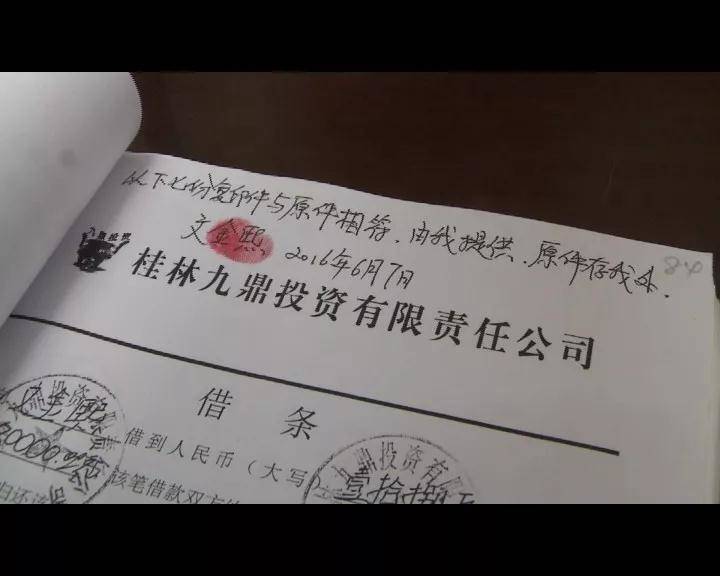 以下七份复印件与原件相符,由我提供,原件存我处.
84
文金熙 2016年6月7日
桂林九鼎投资有限责任公司
借 条
借到人民币(大写)
该笔借款双方
归还该
鼎投资有限责
九鼎投资有限